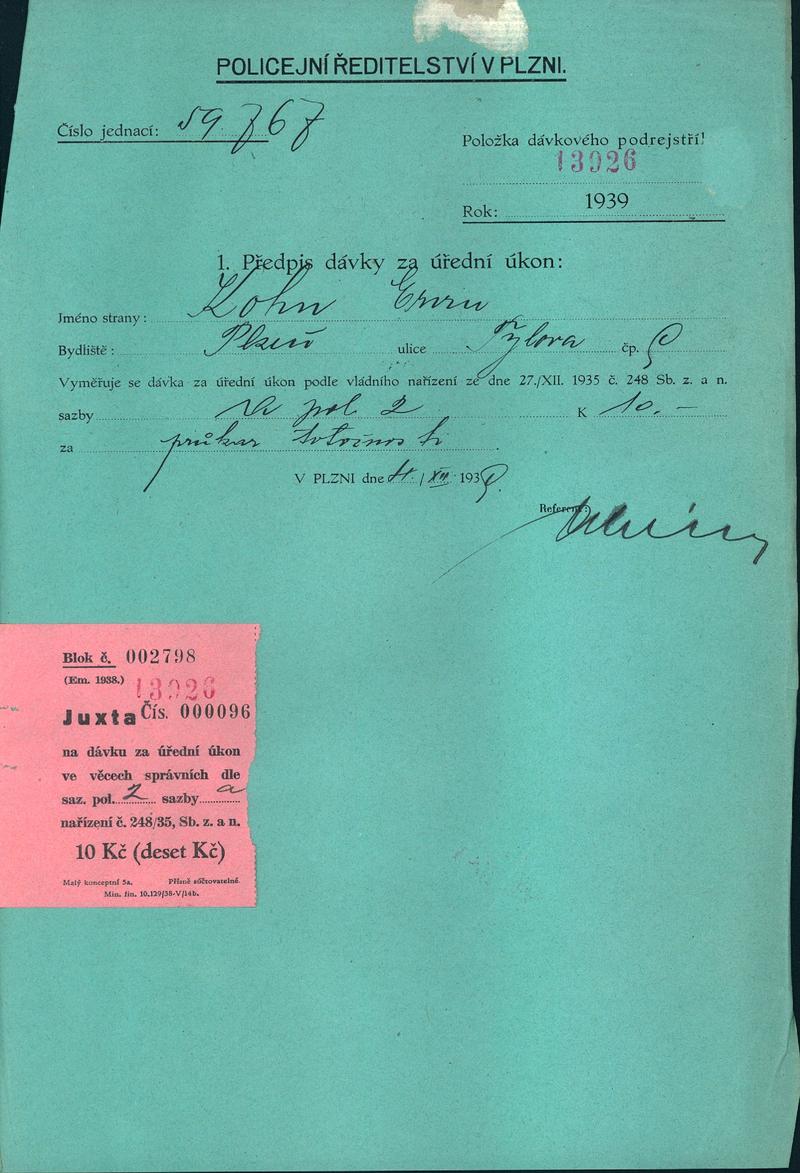 POLICEJNÍ ŘEDITELSTVÍ V PLZNI.
Číslo jednací: 59767
Položka dávkového podrejstří!
13926
Rok: 1939
1. Předpis dávky za úřední úkon:
Jméno strany: Kohn Ervin
Bydliště: Plzeň ulice Tylova čp.
Vyměřuje se dávka za úřední úkon podle vládního nařízení ze dne 27./XII. 1935 č. 248 Sb. z. a n.
sazby pol 2 K 10.–
za průkaz totožnosti
V PLZNI dne /XII 1939
Referent:
Blok č. 002798
(Em. 1938.) 13926
Juxta Čís. 000096
na dávku za úřední úkon
ve věcech správních dle
saz. pol. 2 sazby a
nařízení č. 248/35, Sb. z. a n.
10 Kč (deset Kč)
Malý konceptní 5a. Přísně súčtovatelné.
Min. fin. 10.129/38-V/14b.